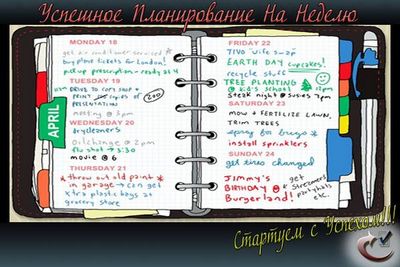 Успешное Планирование На Неделю
APRIL
MONDAY 18
get air conditioner serviced
buy plane tickets for London!
pick up prescription - ready at 4
TUESDAY 19
DRIVE TO COPY SHOP +
PRINT 200
PRESENTATION
meeting @ 1pm
WEDNESDAY 20
drycleaners
oil change @ 2pm
flu shot → 3:30
movie @ 6
THURSDAY 21
* throw out old paint *
in garage → can get
xtra plastic bags at
grocery store
FRIDAY 22
TIVO Wife Swap
EARTH DAY cupcakes!
recycle stuff
TREE PLANTING
@ kid's school 12pm
Steak night @ Susies 7pm
SATURDAY 23
mow + fertilize lawn,
trim trees
spray for bugs
install sprinklers
SUNDAY 24
get tires changed
JIMMY'S
BIRTHDAY @
Burgerland!
* get
streamers
party hats
etc.
Стартуем с Успехом!!!